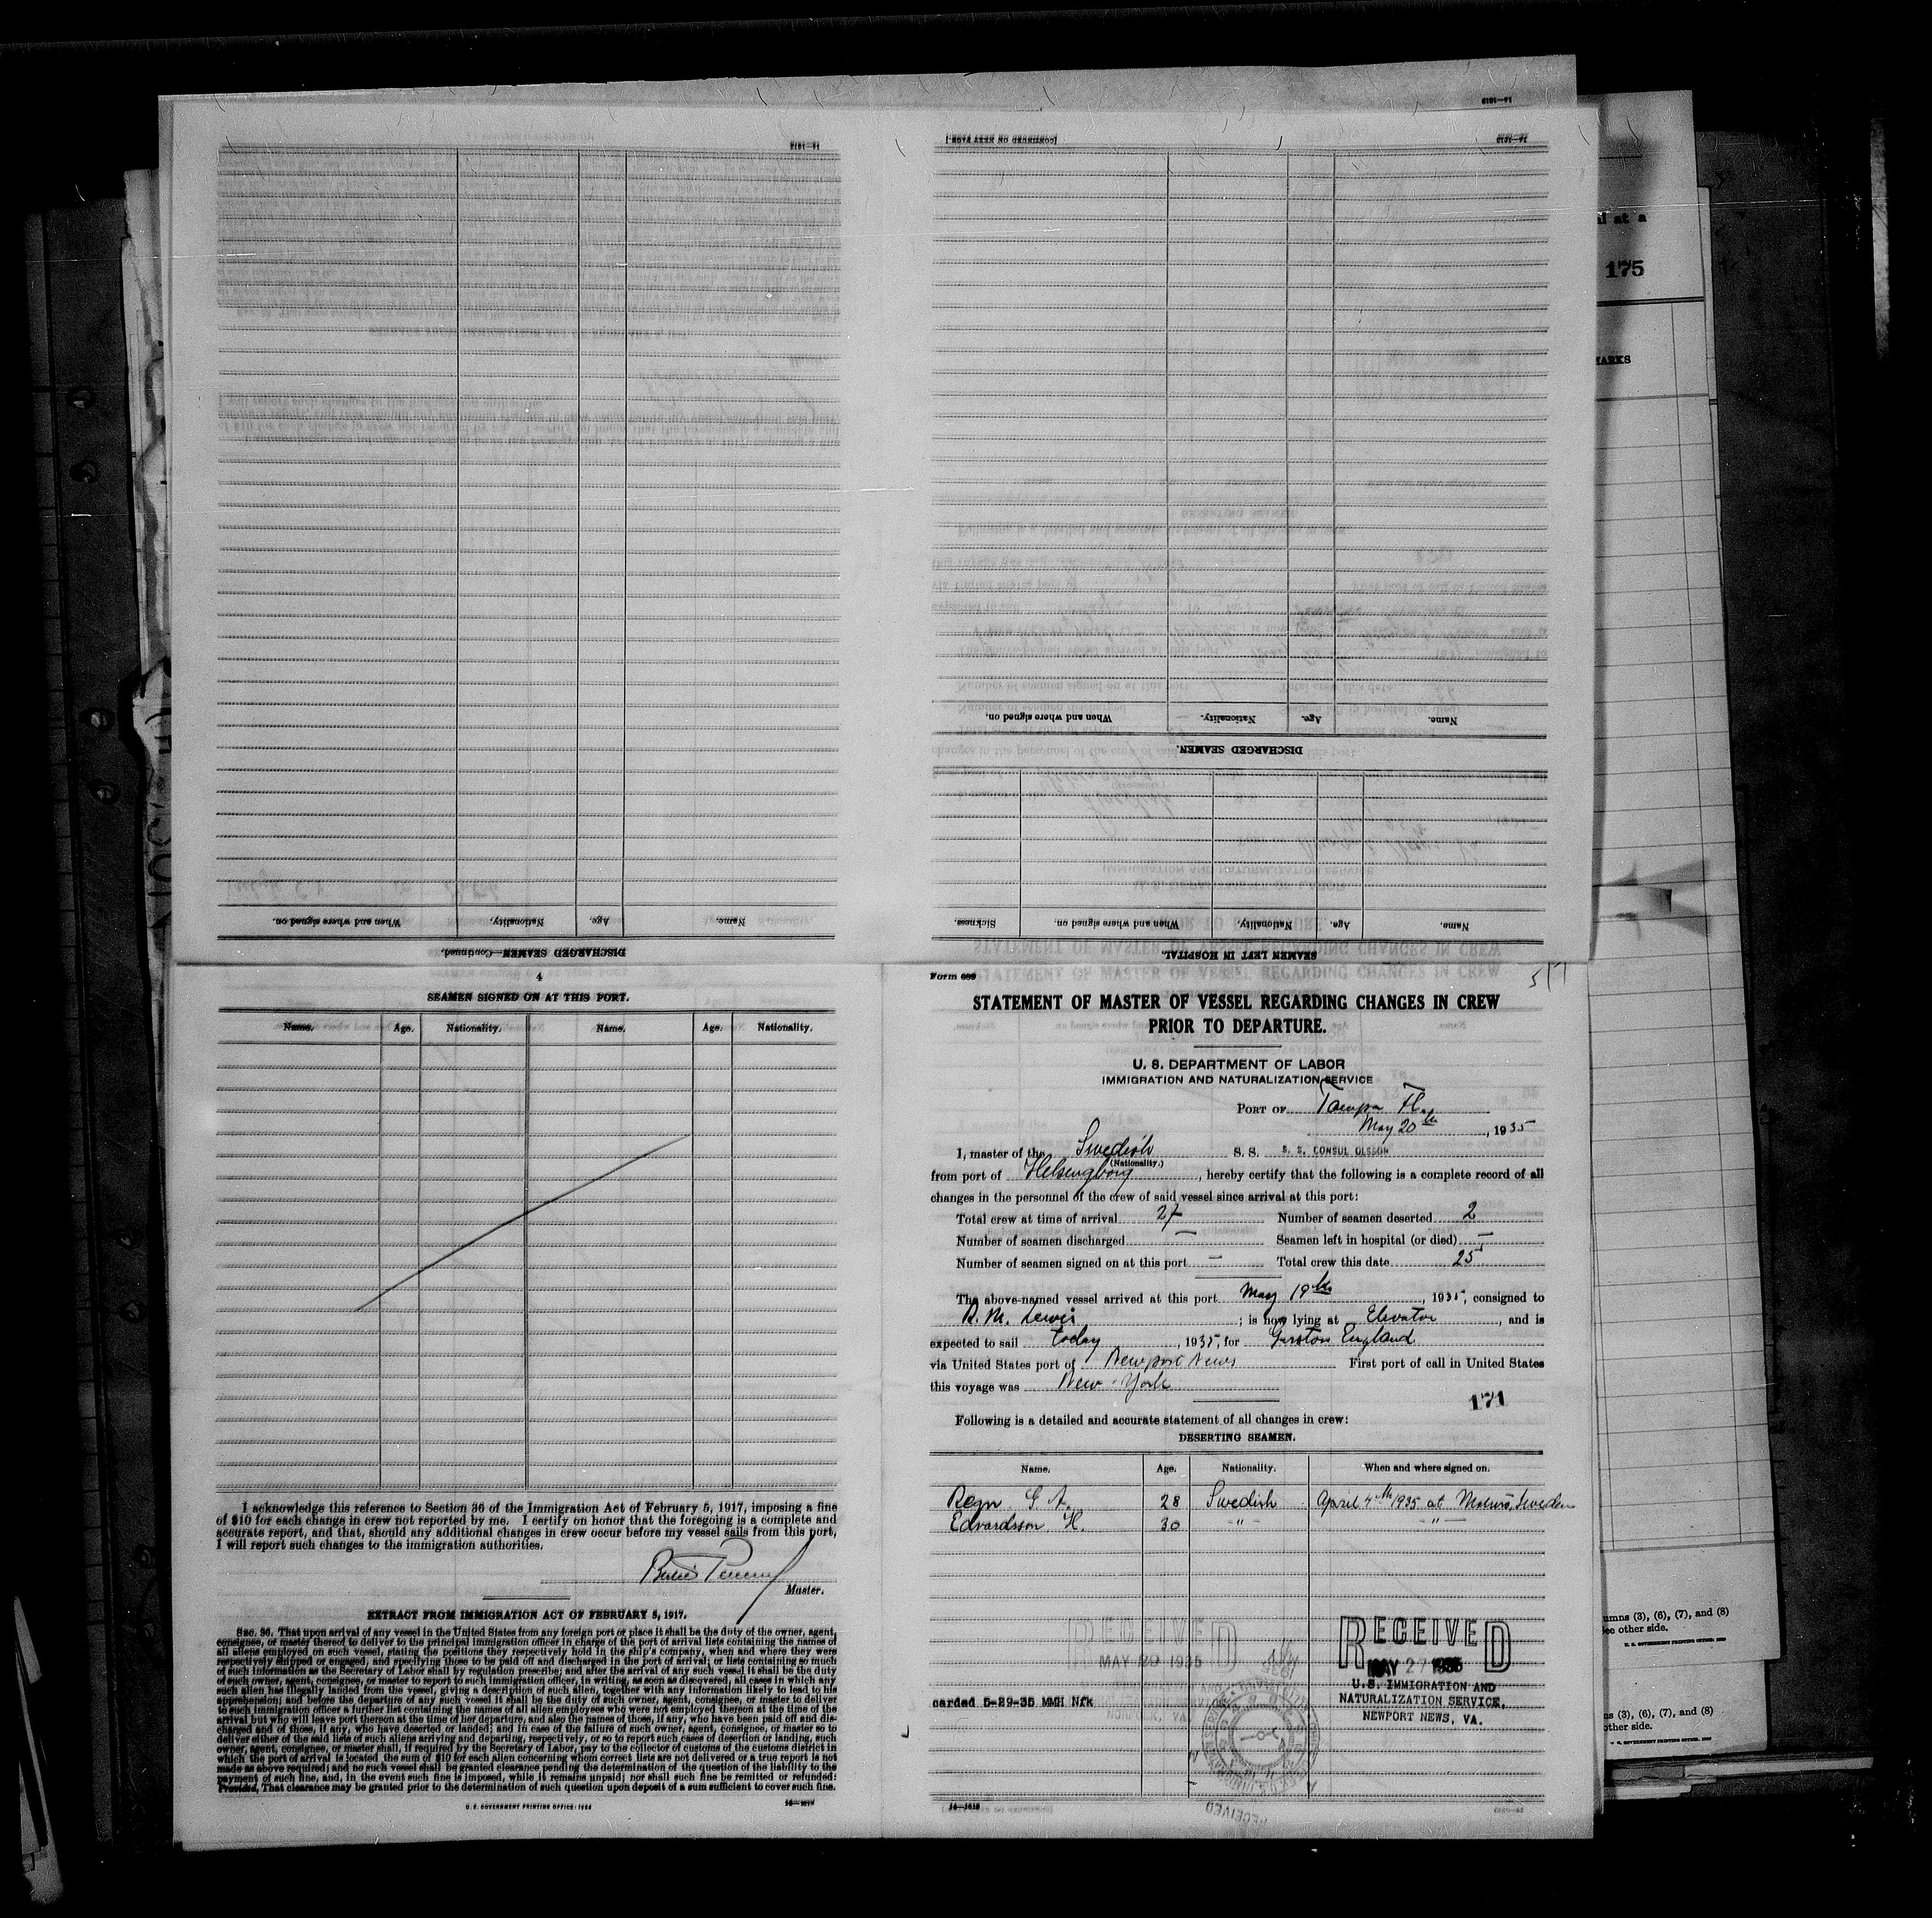 14—1518
[CONTINUED ON NEXT PAGE.]
DISCHARGED SEAMEN.
Name.	Age.	Nationality.	When and where signed on.
SEAMEN LEFT IN HOSPITAL.
Name.	Age.	Nationality.	When and where signed on.	Sickness.
DISCHARGED SEAMEN—Continued.
Name.	Age.	Nationality.	When and where signed on.
al at a
175
MARKS
4
SEAMEN SIGNED ON AT THIS PORT.
Name.	Age.	Nationality.	Name.	Age.	Nationality.
I acknowledge this reference to Section 36 of the Immigration Act of February 5, 1917, imposing a fine
of $10 for each change in crew not reported by me. I certify on honor that the foregoing is a complete and
accurate report, and that, should any additional changes in crew occur before my vessel sails from this port,
I will report such changes to the immigration authorities.
Master.
EXTRACT FROM IMMIGRATION ACT OF FEBRUARY 5, 1917.
SEC. 36. That upon arrival of any vessel in the United States from any foreign port or place it shall be the duty of the owner, agent,
consignee, or master thereof to deliver to the principal immigration officer in charge of the port of arrival lists containing the names of
all aliens employed on such vessel, stating the positions they respectively hold in the ship's company, when and where they were
respectively shipped or engaged, and specifying those to be paid off and discharged in the port of arrival; or lists containing so much
of such information as the Secretary of Labor shall by regulation prescribe; and after the arrival of any such vessel it shall be the duty
of such owner, agent, consignee, or master to report to such immigration officer, in writing, as soon as discovered, all cases in which any
such alien has illegally landed from the vessel, giving a description of such alien, together with any information likely to lead to his
apprehension; and before the departure of any such vessel it shall be the duty of such owner, agent, consignee, or master to deliver
to such immigration officer a further list containing the names of all alien employees who were not employed thereon at the time of the
arrival but who will leave port thereon at the time of her departure, and also the names of those, if any, who have been paid off and dis-
charged and of those, if any, who have deserted or landed; and in case of the failure of such owner, agent, consignee, or master so to
deliver either of the said lists of such aliens arriving and departing, respectively, or so to report such cases of desertion or landing, such
owner, agent, consignee, or master shall, if required by the Secretary of Labor, pay to the collector of customs of the customs district in
which the port of arrival is located, the sum of $10 for each alien concerning whom correct lists are not delivered or a true report is not
made as above required; and no such vessel shall be granted clearance pending the determination of the question of the liability to the
payment of such fine, and, in the event such fine is imposed, while it remains unpaid; nor shall such fine be remitted or refunded:
Provided, That clearance may be granted prior to the determination of such question upon deposit of a sum sufficient to cover such fine.
U. S. GOVERNMENT PRINTING OFFICE: 1934
Form 689
STATEMENT OF MASTER OF VESSEL REGARDING CHANGES IN CREW
PRIOR TO DEPARTURE.
U. S. DEPARTMENT OF LABOR
IMMIGRATION AND NATURALIZATION SERVICE
PORT OF Tampa Fla
May 20th, 1935
I, master of the Swedish S. S. S. S. CONSUL OLSSON
(Nationality.)
from port of Helsingborg, hereby certify that the following is a complete record of all
changes in the personnel of the crew of said vessel since arrival at this port:
Total crew at time of arrival 27 Number of seamen deserted 2
Number of seamen discharged — Seamen left in hospital (or died) —
Number of seamen signed on at this port — Total crew this date 25
The above-named vessel arrived at this port May 19th, 1935, consigned to
R. M. Lewis; is now lying at Elevator, and is
expected to sail today, 1935, for Garston England
via United States port of Newport News First port of call in United States
this voyage was New-York
171
Following is a detailed and accurate statement of all changes in crew:
DESERTING SEAMEN.
Name.	Age.	Nationality.	When and where signed on.
Regn G A.	28	Swedish	April 4th 1935 at Malmö, Sweden
Edvardsson H.	30	— " —	— " —
RECEIVED
MAY 29 1935
NORFOLK, VA.
carded 5-29-35 MMH Nfk
RECEIVED
MAY 27 1935
U. S. IMMIGRATION AND
NATURALIZATION SERVICE,
NEWPORT NEWS, VA.
RECEIVED
14—1518
umns (3), (6), (7), and (8)
See other side.
ns (3), (6), (7), and (8)
other side.